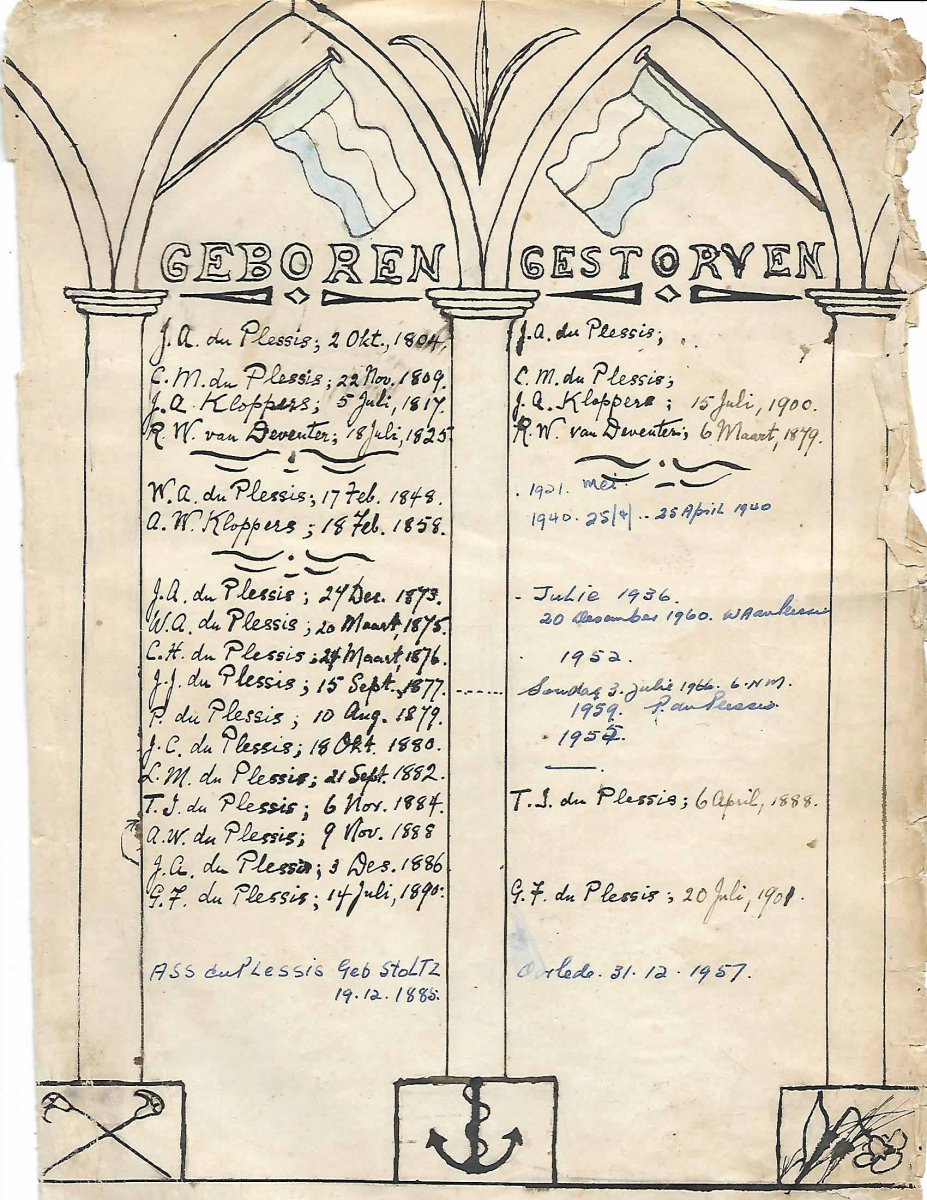 GEBOREN
J. A. du Plessis; 2 Okt., 1804.
C. M. du Plessis; 22 Nov. 1809.
J. A. Kloppers; 5 Juli, 1817.
R. W. van Deventer; 18 Juli, 1825.
W. A. du Plessis; 17 Feb. 1848.
A. W. Kloppers; 18 Feb. 1858.
J. A. du Plessis; 24 Des. 1873.
W. A. du Plessis; 20 Maart, 1875.
C. H. du Plessis; 24 Maart, 1876.
J. J. du Plessis; 15 Sept. 1877.
P. du Plessis; 10 Aug. 1879.
J. C. du Plessis; 18 Okt. 1880.
L. M. du Plessis; 21 Sept. 1882.
T. J. du Plessis; 6 Nov. 1884.
A. W. du Plessis; 9 Nov. 1888
J. A. du Plessis; 3 Des. 1886
G. F. du Plessis; 14 Juli, 1890.
ASS du PLessis Geb StoLTZ
19.12.1885.
GESTORVEN
J. A. du Plessis;
C. M. du Plessis;
J. A. Kloppers; 15 Juli, 1900.
R. W. van Deventer; 6 Maart, 1879.
1921. Mei.
1940. 25/4 .. 25 April 1940
- Julie 1936.
20 Desember 1960.
1952.
Sondag 3. Julie 1966. 6. N.M.
1959. P. du Plessis
1955.
T. J. du Plessis; 6 April, 1888.
G. F. du Plessis; 20 Juli, 1901.
Oorlede. 31.12.1957.